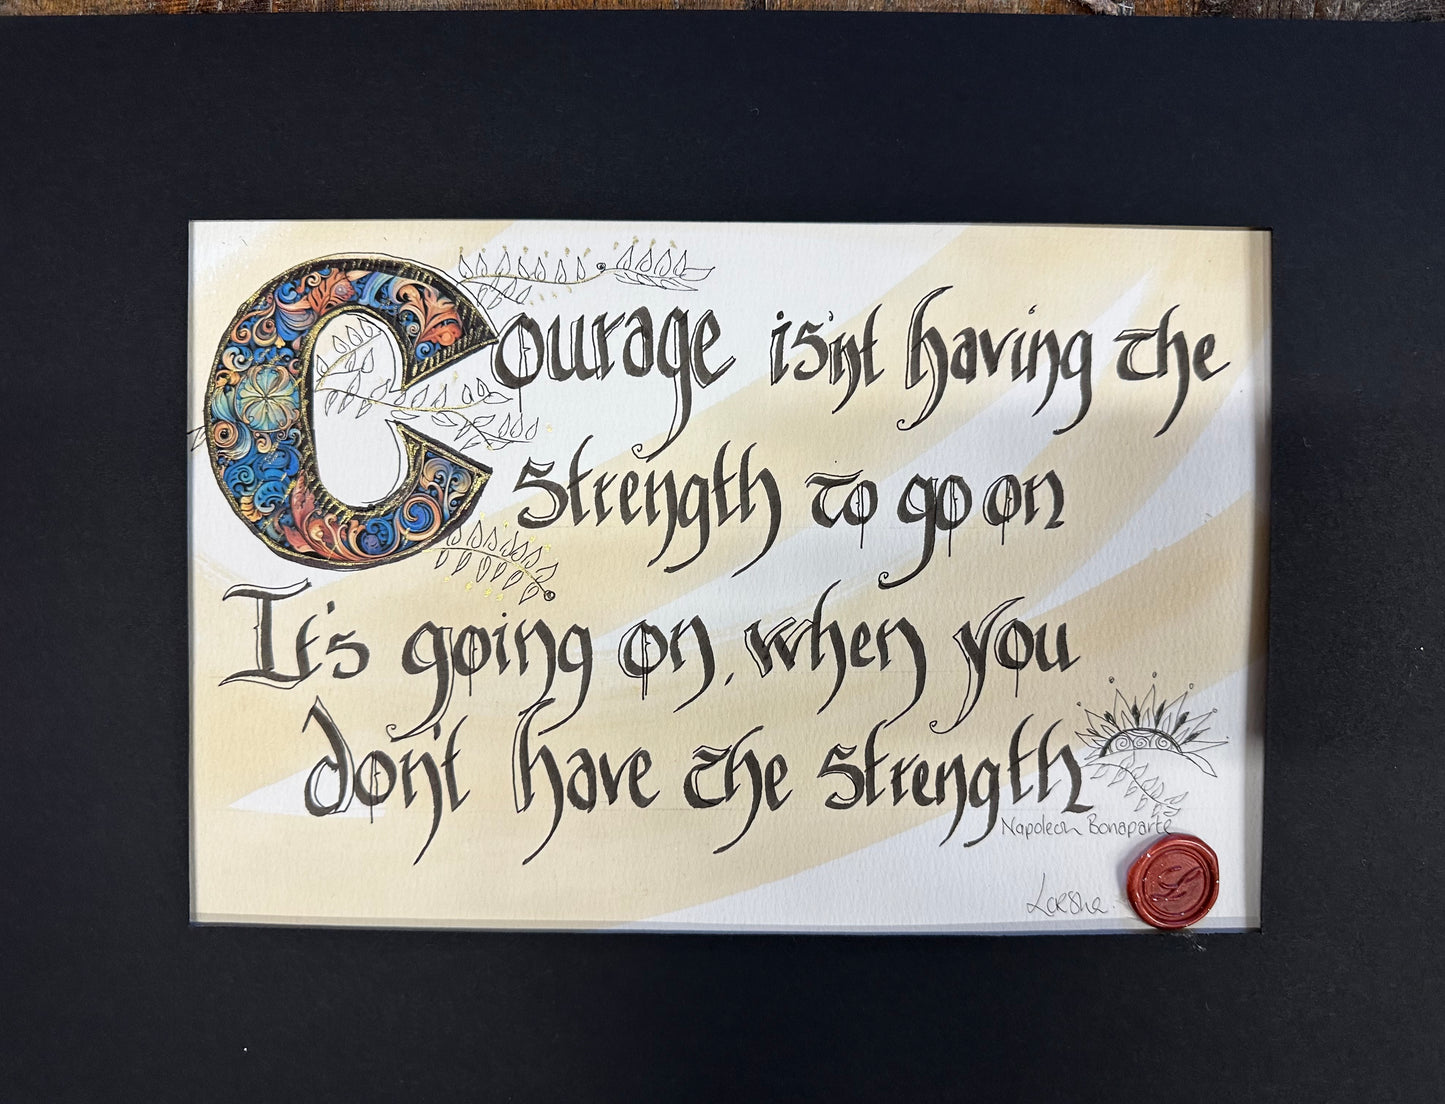 Courage isn't having the
Strength to go on
It's going on, when you
don't have the strength
Napoleon Bonaparte